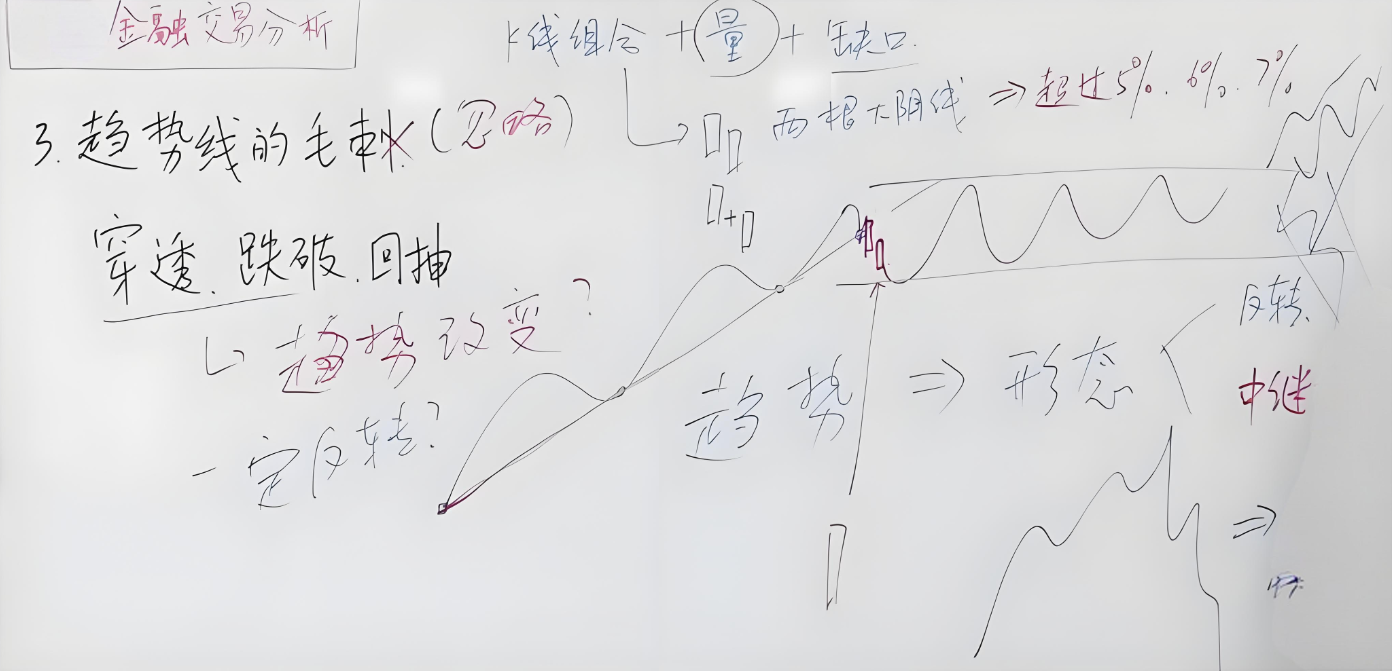 金融交易分析
K线组合+量+缺口
两根大阴线 ⇒ 超过5%.6%.7%
3.趋势线的毛刺(忽略)
穿透.跌破.回抽
趋势改变?
一定反转?
趋势 ⇒ 形态
反转
中继